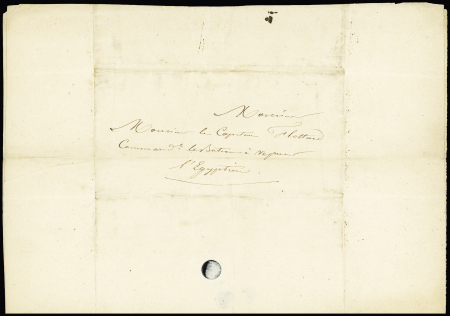 Monsieur
Monsieur le Capitaine
Commandt le Bateau à vapeur
l'Egyptien